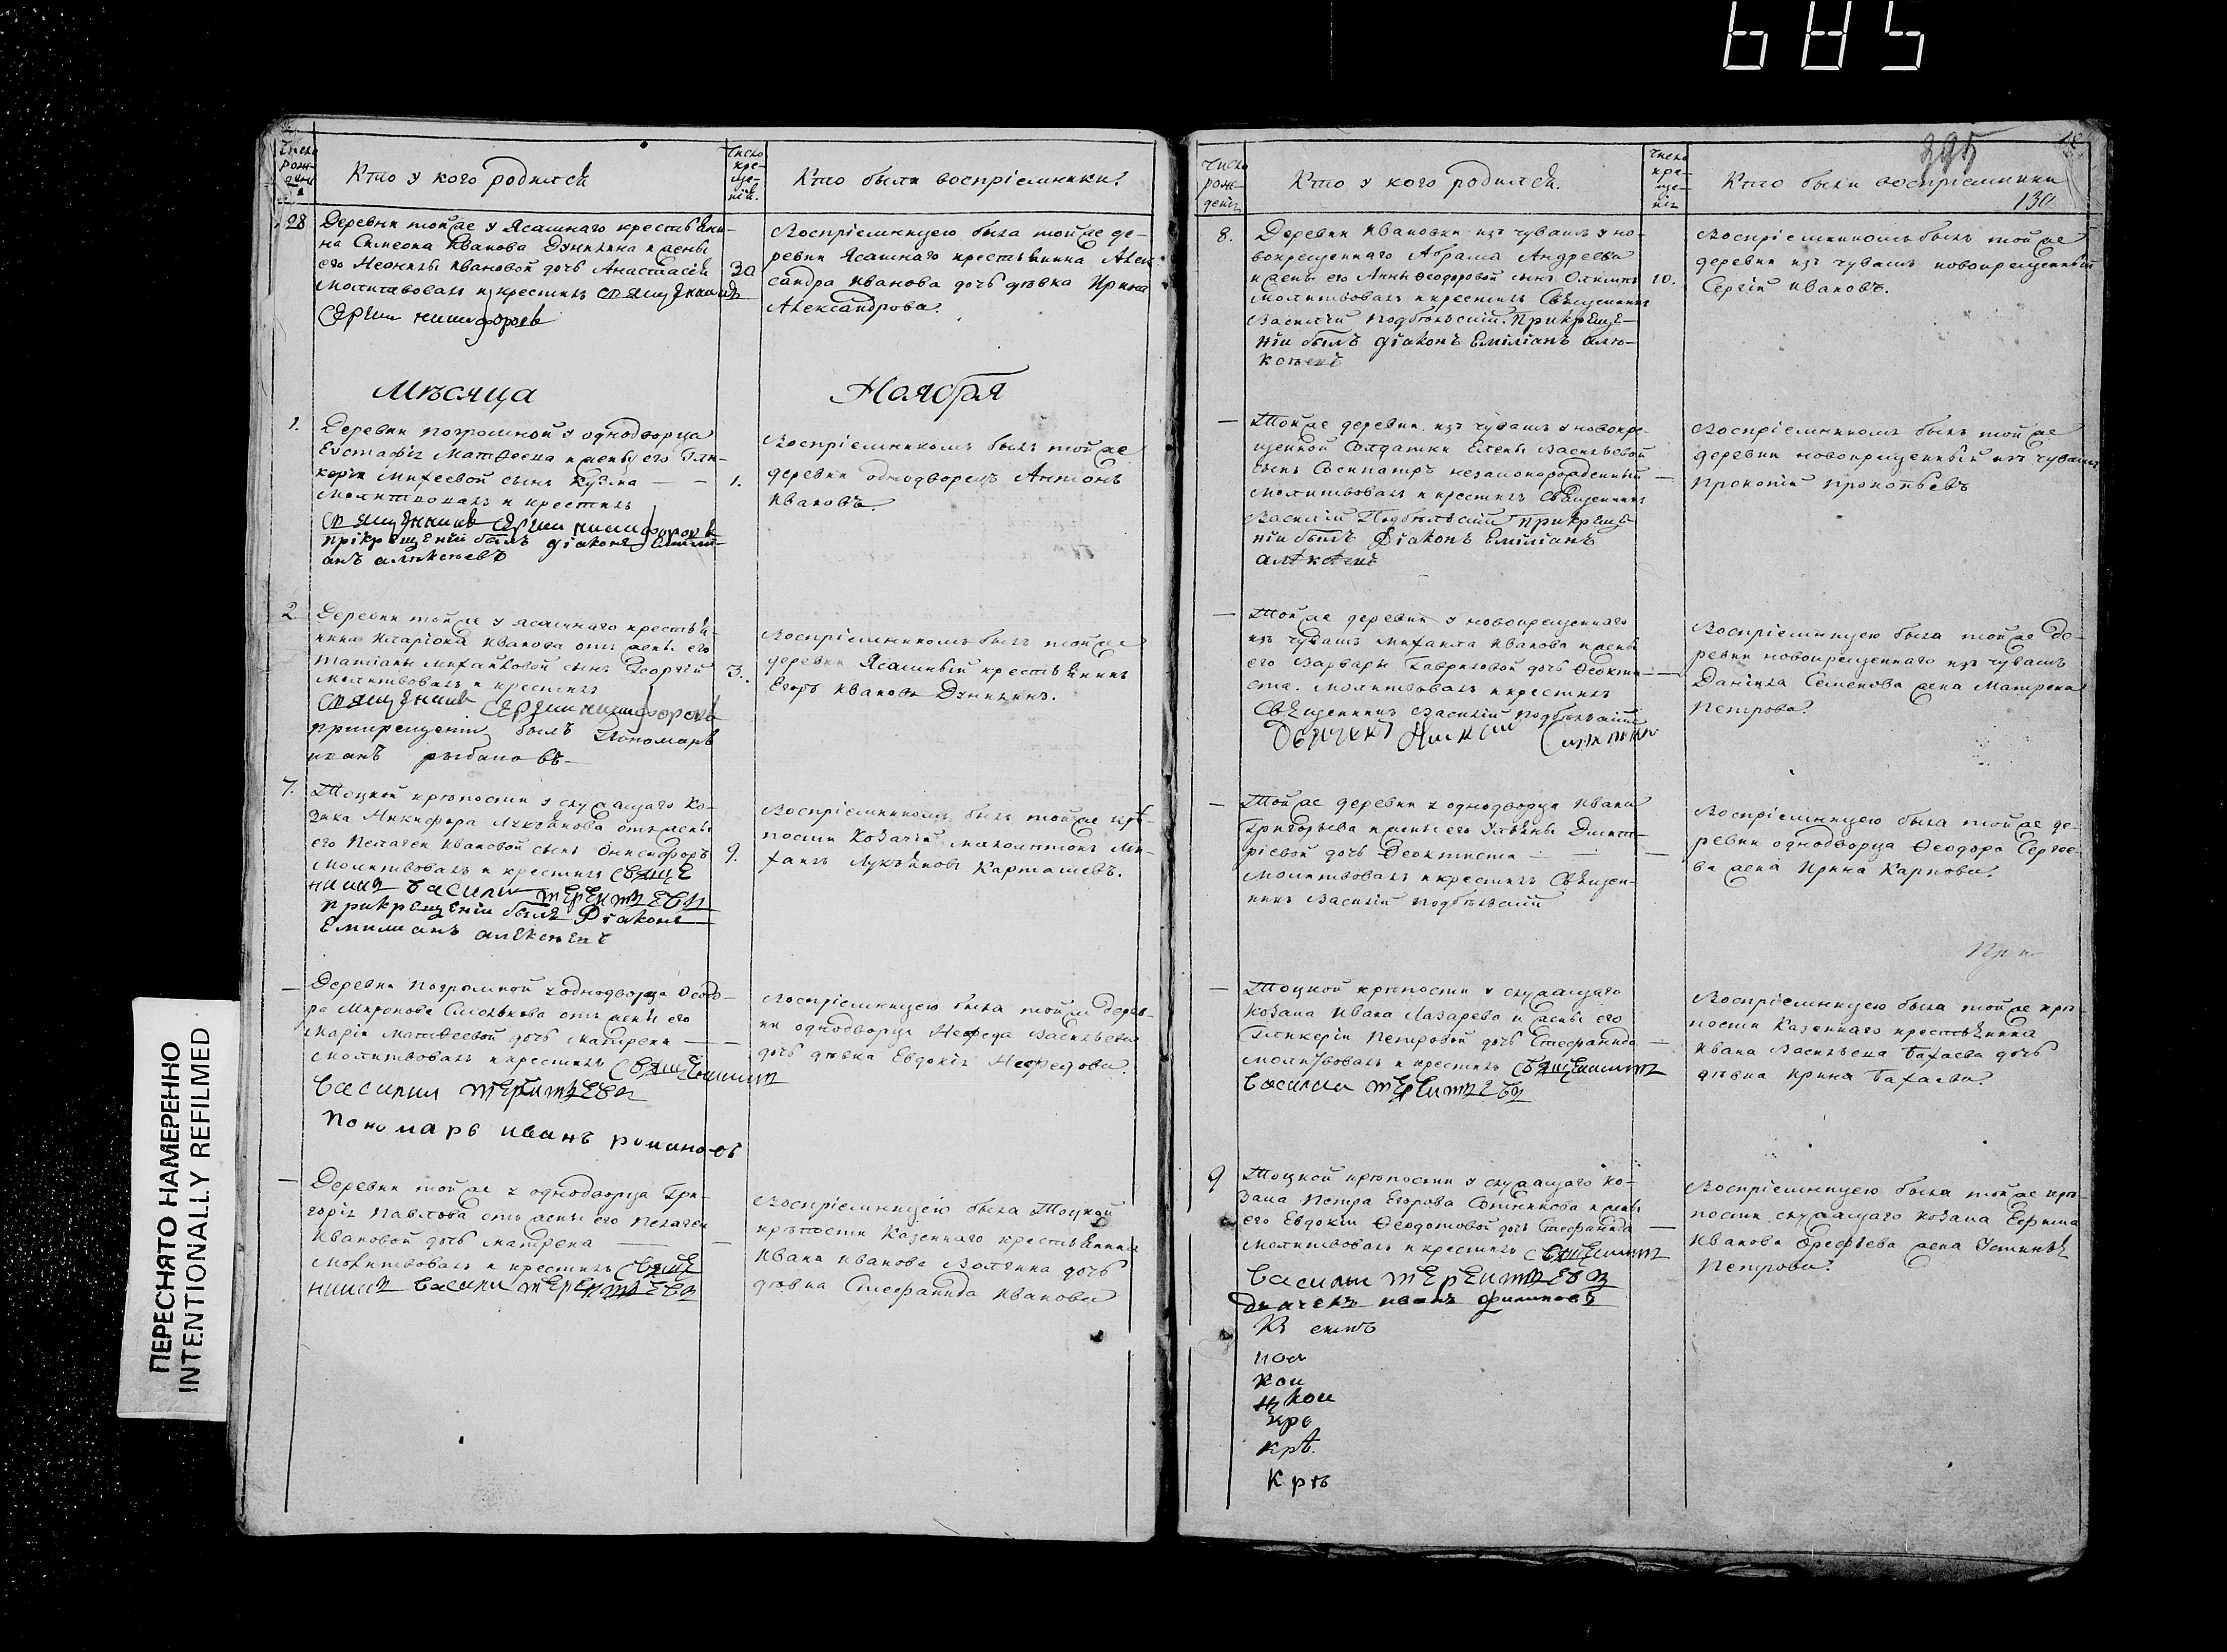 685
395
130
Число рожденія
Кто у кого родился
Число крещенія.
Кто были воспріемники?
28
Деревни той же у Ясашнаго крестьяни-
на Симеона Иванова Дунилина и жены
его Неонилы Ивановой дочь Анастасія
30
молитвовалъ и крестилъ священникъ
Сергий Никифоровъ
Воспріемницею была той же де-
ревни Ясашнаго крестьянина Алек-
сандра Иванова дочь дѣвка Ирина
Александрова.
Мѣсяца
Ноября
1.
Деревни погромной у однодворца
Евстафія Матвѣева и жены его Гли-
керіи Михеевой сынъ Кузма
1.
Молитвовалъ и крестилъ
священникъ Сергий Никифоровъ
прікрещеніи былъ діаконъ Емили-
анъ алѣксѣевъ
Воспріемникомъ былъ той же
деревни однодворецъ Антонъ
Ивановъ.
2
Деревни той же у ясашнаго крестья-
нина Иларіона Иванова отъ жены его
Татіаны Михайловой сынъ Георгій
3.
молитвовалъ и крестилъ
священникъ Сергий Никифоровъ
прикрещеніи былъ Пономарь
иванъ
Воспріемникомъ былъ той же
деревни Ясашный крестьянинъ
Егоръ Ивановъ Дунилинъ.
7.
Тоцкой крѣпости у служащаго ко-
зака Никифора Лукьянова отъ жены
его Пелагеи Ивановой сынъ Онисифоръ
9.
молитвовалъ и крестилъ свяще
никъ василии терентьевъ
прикрещеніи былъ Діаконъ
Емилианъ алексѣевъ
Воспріемникомъ былъ той же крѣ-
пости Козачій малолѣтокъ Ми-
хаилъ Лукьяновъ Карташевъ.
—
Деревни Погромной у однодворца Ѳеодо-
ра Миронова отъ жены его
Маріи Матвѣевой дочь Матрена
молитвовалъ и крестилъ Священникъ
василии терентьевъ
пономарь иванъ романовъ
Воспріемницею была той же дерев-
ни однодворца Нефеда Васильева
дочь дѣвка Евдокія Нефедова.
—
Деревни той же у однодворца Гри-
горія Павлова отъ жены его Пелагеи
Ивановой дочь Матрена
молитвовалъ и крестилъ Свяще
никъ василии терентьевъ
Воспріемницею была Тоцкой
крѣпости Казеннаго крестьянина
Ивана Иванова дочь
дѣвка Стефанида Иванова
Число рожденія
Кто у кого родился.
Число крещенія
Кто были воспріемники
8.
Деревни Ивановки изъ чувашъ у но-
вокрещеннаго Абрама Андреева
и жены его Анны Ѳеодоровой сынъ Олимпъ
10.
молитвовалъ и крестилъ Священникъ
Василій Подбѣльскій. Прикреще-
ніи былъ діаконъ Емиліанъ алѣ-
ксѣевъ
Воспріемникомъ былъ той же
деревни изъ чувашъ новокрещенный
Сергій Ивановъ.
—
Той же деревни изъ чувашъ у новокре-
щенной Солдатки Елены Васильевой
сынъ Сосипатръ незаконорожденный
молитвовалъ и крестилъ Священникъ
Василій Подбѣльскій Прикреще-
ніи былъ Діаконъ Емиліанъ
алѣксѣевъ
Воспріемникомъ былъ той же
деревни новокрещенный изъ чувашъ
Прокопій Прокопьевъ
—
Той же деревни у новокрещеннаго
изъ чувашъ Михаила Иванова и жены
его Варвары Гавриловой дочь Ѳеокти-
ста. молитвовалъ и крестилъ
Священникъ Василій Подбѣльскій
Воспріемницею была той же де-
ревни новокрещеннаго изъ чувашъ
Даніила Семенова жена Матрена
Петрова.
—
Той же деревни у однодворца Ивана
Григорьева и жены его Ульяны Димит-
ріевой дочь Ѳеоктиста
молитвовалъ и крестилъ Священ-
никъ Василій Подбѣльскій
Воспріемницею была той же де-
ревни однодворца Ѳеодора Сергее-
ва жена Ирина Карпова.
При
—
Тоцкой крѣпости у служащаго
козака Ивана Лазарева и жены его
Гликеріи Петровой дочь Стефанида
молитвовалъ и крестилъ священникъ
василии терентьевъ
Воспріемницею была той же крѣ-
пости Казеннаго крестьянина
Ивана Васильева Бахаева дочь
дѣвка Ирина Бахаева.
9
Тоцкой крѣпости у служащаго ко-
зака Петра Егорова Сотникова и жены
его Евдокіи Ѳеодотовой дочь Стефанида
молитвовалъ и крестилъ священникъ
василии терентьевъ
дьячекъ иванъ филиповъ
Воспріемницею была той же крѣ-
пости служащаго козака Ефима
Иванова Орефьева жена Устинья
Петрова.
пом
кои
кре
крѣ.
крѣ
ПЕРЕСНЯТО НАМЕРЕННО
INTENTIONALLY REFILMED